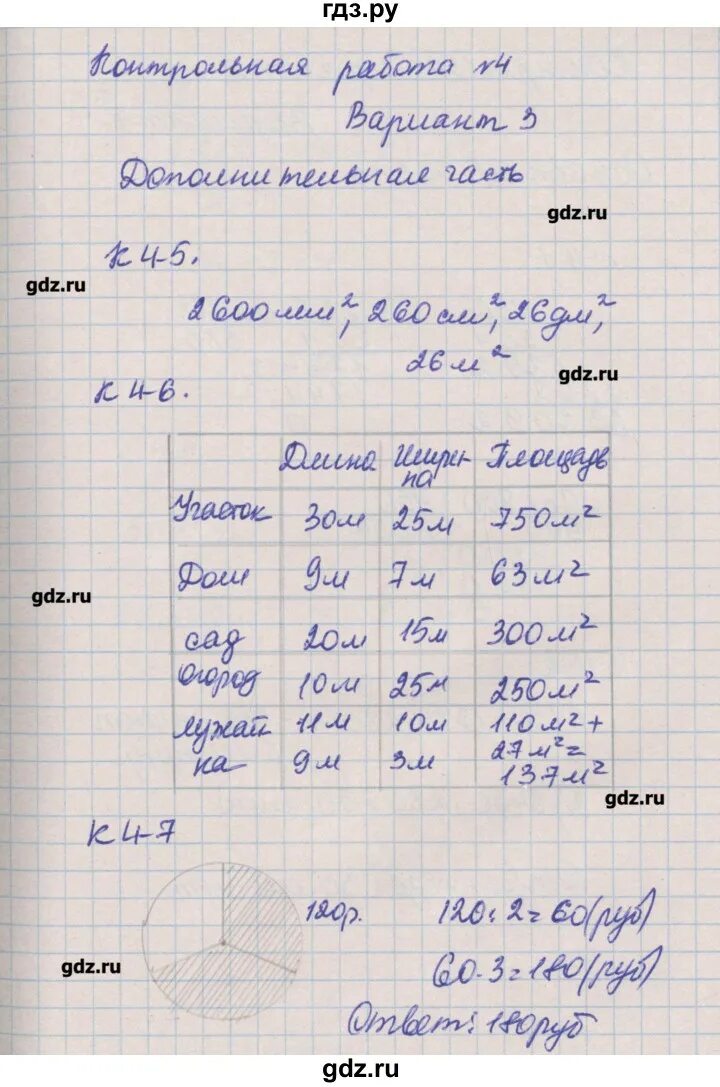 гдз.ру
Контрольная работа №4
Вариант 3
Дополнительная часть
gdz.ru
К 4-5.
gdz.ru
2600мм², 260см², 26дм²,
26м²
gdz.ru
К 4-6.
Длина Шири- Площадь
на
Участок 30м 25м 750м²
Дом 9м 7м 63м²
gdz.ru
сад 20м 15м 300м²
огород 10м 25м 250м²
лужай 11м 10м 110м²+
ка 9м 3м 27м²=
137м²
gdz.ru
К 4-7
120р. 120:2=60(руб)
gdz.ru
60·3=180(руб)
Ответ: 180руб
gdz.ru